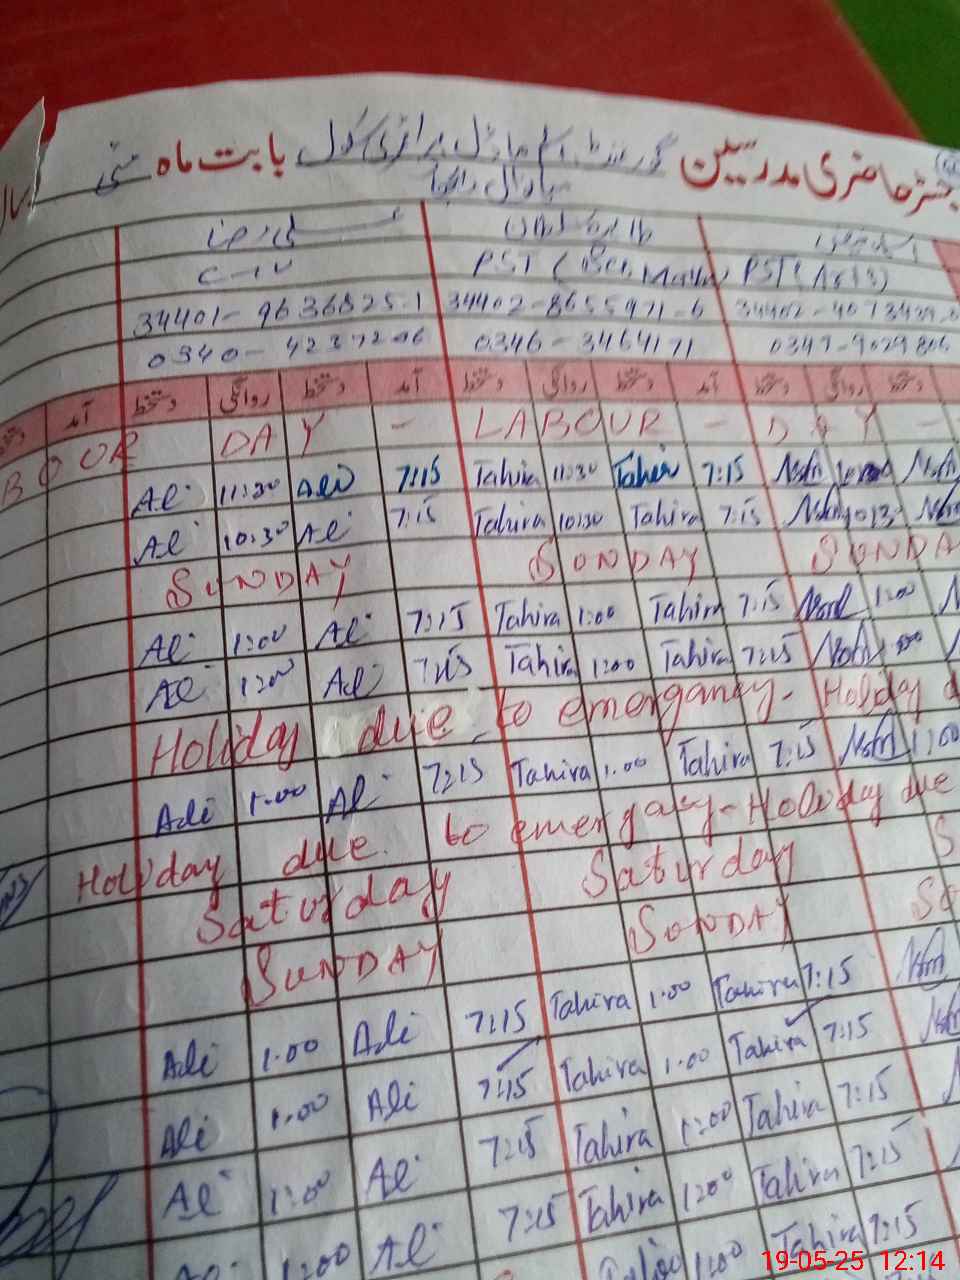 رجسٹر حاضری مدرسین گورنمنٹ ایم سی ماڈل پرائمری سکول بابت ماہ مئی
علی رضا طاہرہ
C-IV PST (Sci, Maths) PST (Arts)
34401-9636825-1 34402-8655971-6 34402-4073439
0340-4237206 0346-3464171 0347-9029806
آمد دستخط روانگی دستخط آمد دستخط روانگی دستخط آمد دستخط روانگی دستخط
BOUR DAY - LABOUR - DAY -
Al 11:30 Ali 7:15 Tahira 11:30 Tahira 7:15
Al 10:30 Al 7:15 Tahira 10:30 Tahira 7:15
SUNDAY SUNDAY SUNDA
Al 1:00 Al 7:15 Tahira 1:00 Tahira 7:15 1:00
Al 1:00 Al 7:15 Tahira 1:00 Tahira 7:15
Holiday due to emergancy. Holiday d
Ali 1:00 Al 7:15 Tahira 1:00 Tahira 7:15 1:00
Holiday due to emergacy - Holiday due
Saturday Saturday S
SUNDAY SUNDAY SU
Ali 1:00 Ali 7:15 Tahira 1:00 Tahira 7:15
Ali 1:00 Ali 7:15 Tahira 1:00 Tahira 7:15
Al 1:00 Al 7:15 Tahira 1:00 Tahira 7:15
1:00 Al 7:15 Tahira 1:00 Tahira 7:15
1:00 Tahira 7:15
19-05-25 12:14